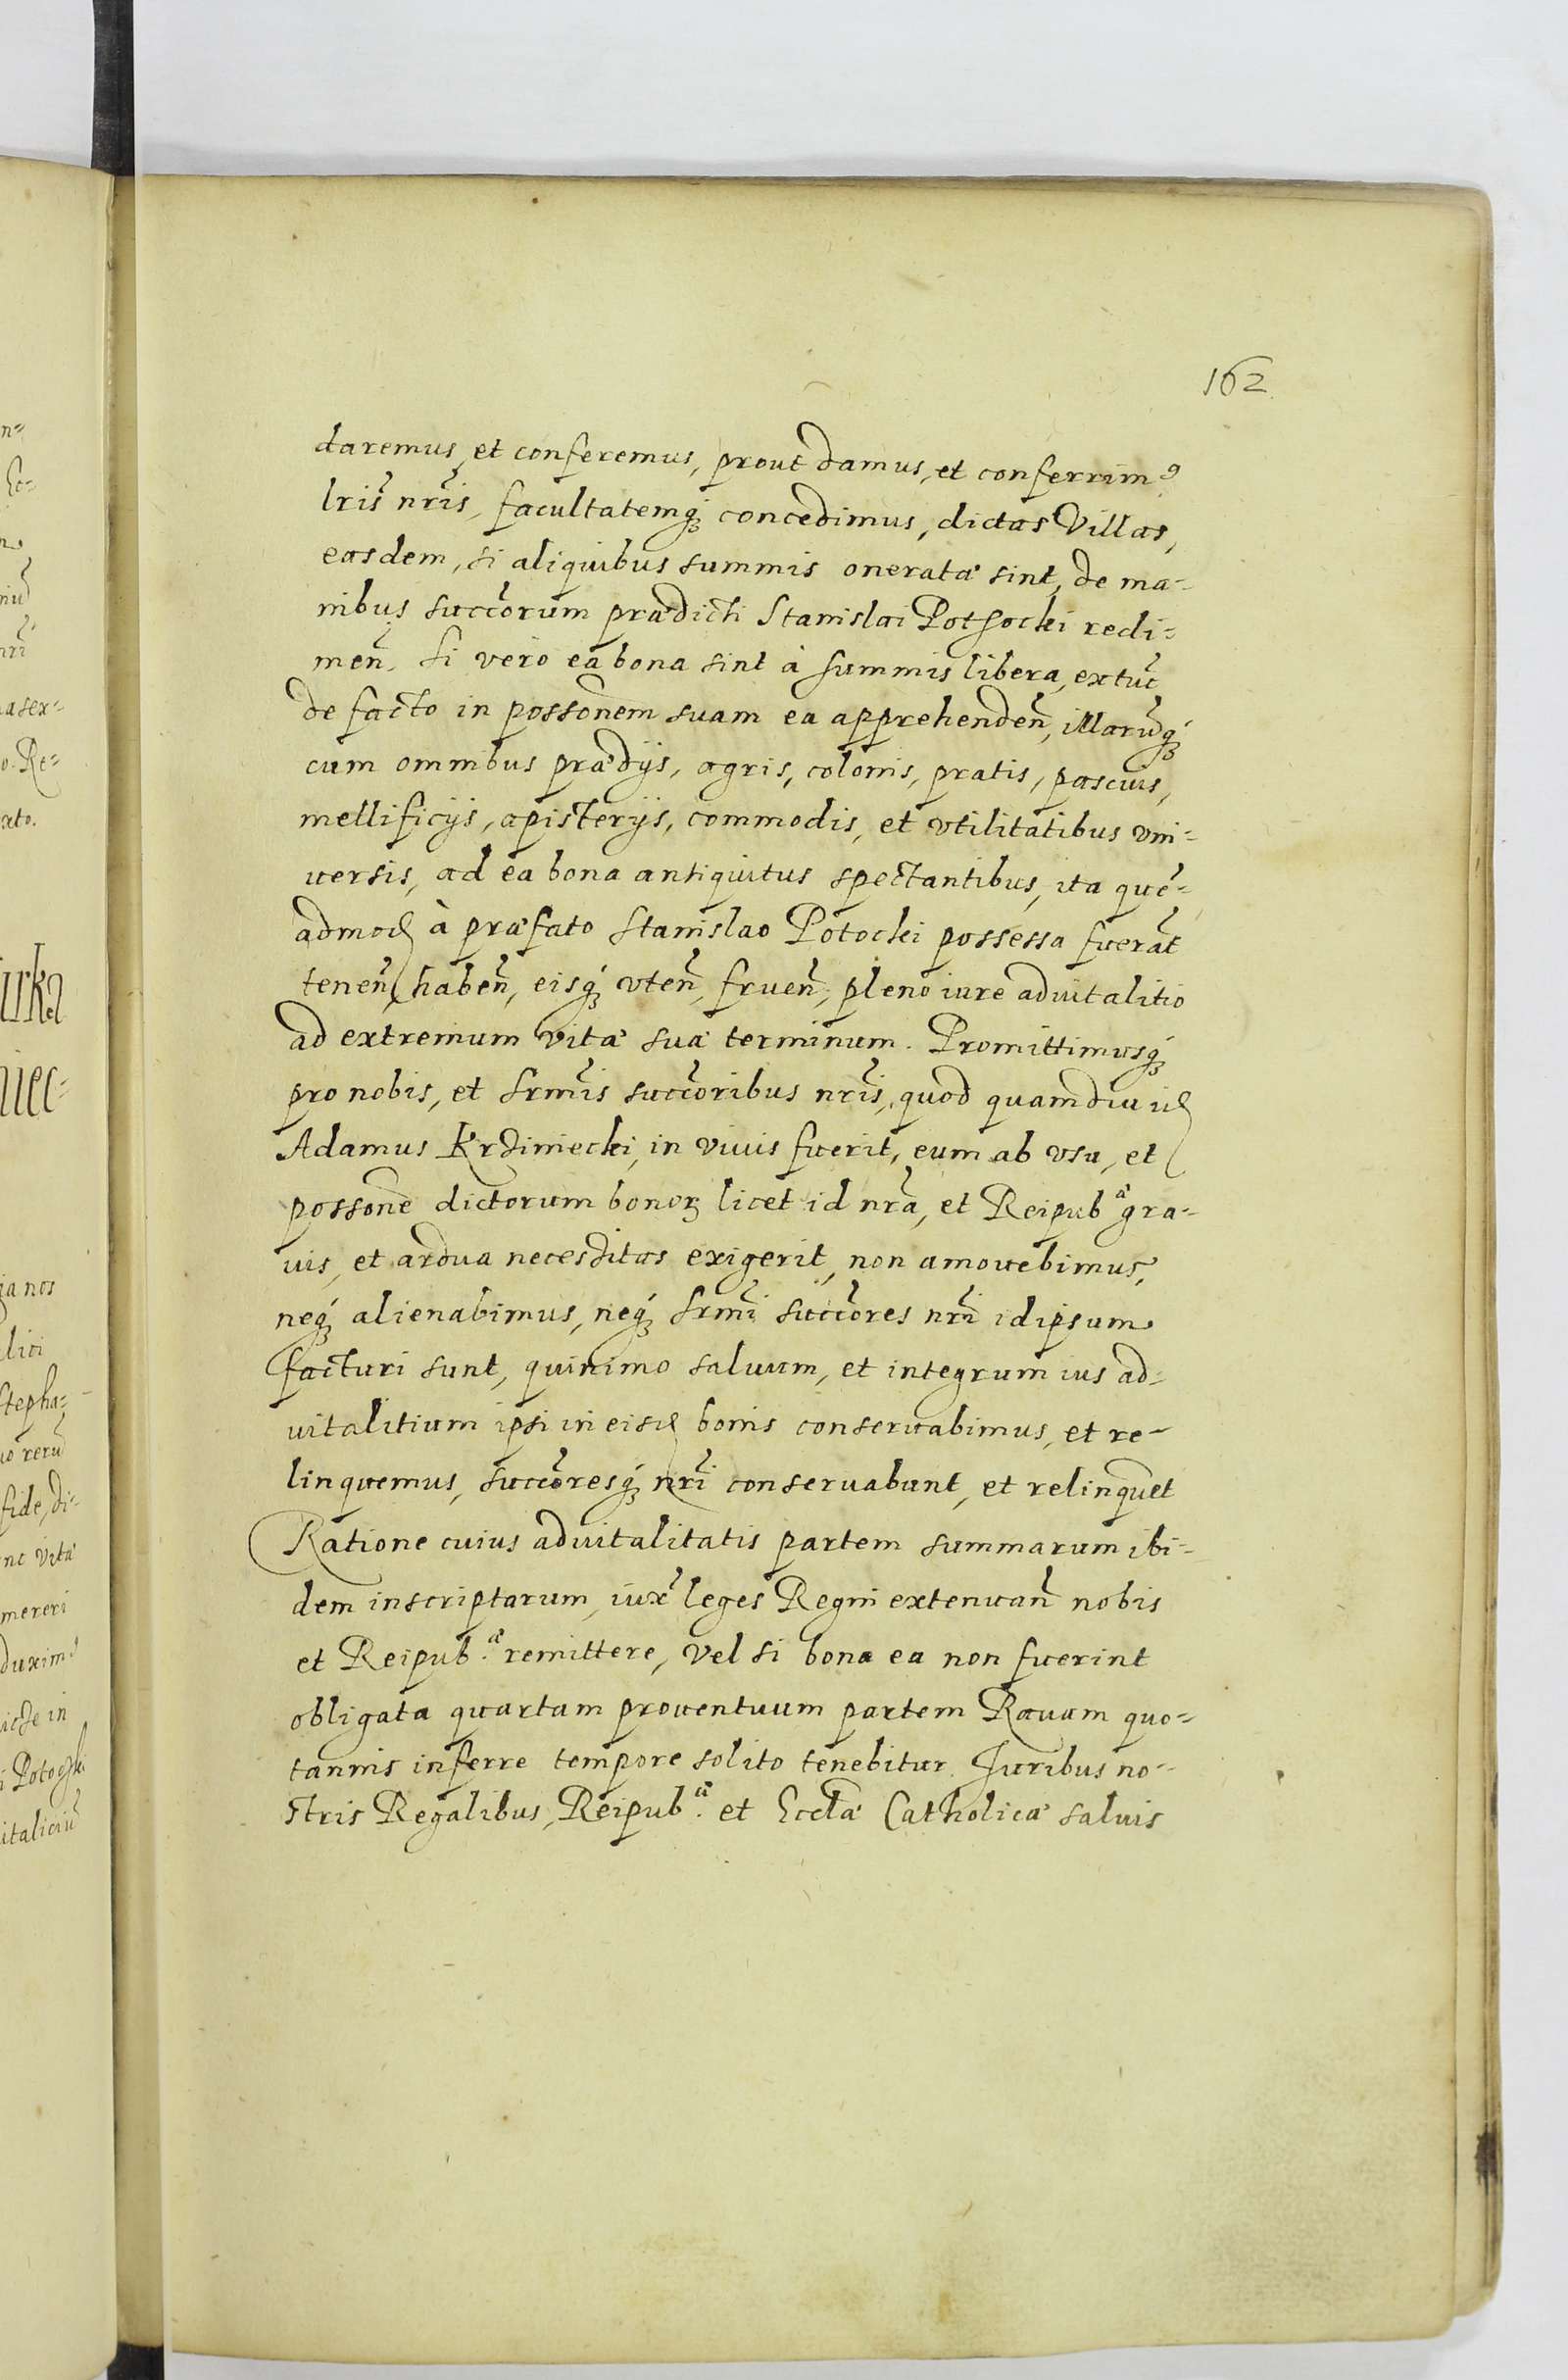 162
daremus, et conferemus, prout damus, et conferrim9
lris nris, facultatemq́ꝫ concedimus, dictas Villas,
easdem, si aliquibus summis oneratæ sint, de ma-
nibus succorum prædicti Stanislai Potsocki redi-
men̄, si vero ea bona sint à summis libera, extuc̄
de facto in possonem suam ea apprehenden̄, illarūq́ꝫ
cum omnibus prædijs, agris, colonis, pratis, pascuis,
mellificijs, apisterijs, commodis, et vtilitatibus vni-
uersis, ad ea bona antiquitus spectantibus, ita quē-
admod à præfato Stanislao Potocki possessa fuerāt
tenen̄, haben̄, eisq́ꝫ vten̄, fruen̄, pleno iure aduitalitio
ad extremum vitæ suæ terminum. Promittimusq́ꝫ
pro nobis, et Srmis succoribus nris, quod quamdiu id
Adamus Krziniecki, in viuis fuerit, eum ab vsu, et
possone dictorum bonoꝝ licet id nra, et Reipub.æ gra-
uis, et ardua necessitas exigerit, non amouebimus,
neq́ꝫ alienabimus, neq́ꝫ Srmi succores nri idipsum
facturi sunt, quinimo saluum, et integrum ius ad-
uitalitium ipsi in eisd bonis conseruabimus, et re-
linquemus, succoresq́ꝫ nri conseruabunt, et relinquēt
Ratione cuius aduitalitatis partem summarum ibi-
dem inscriptarum, iux leges Regni extenuan̄ nobis
et Reipub.æ remittere, vel si bona ea non fuerint
obligata quartam prouentuum partem Rauam quo-
tannis inferre tempore solito tenebitur. Juribus no-
stris Regalibus, Reipub.æ et Eccla Catholicæ saluis